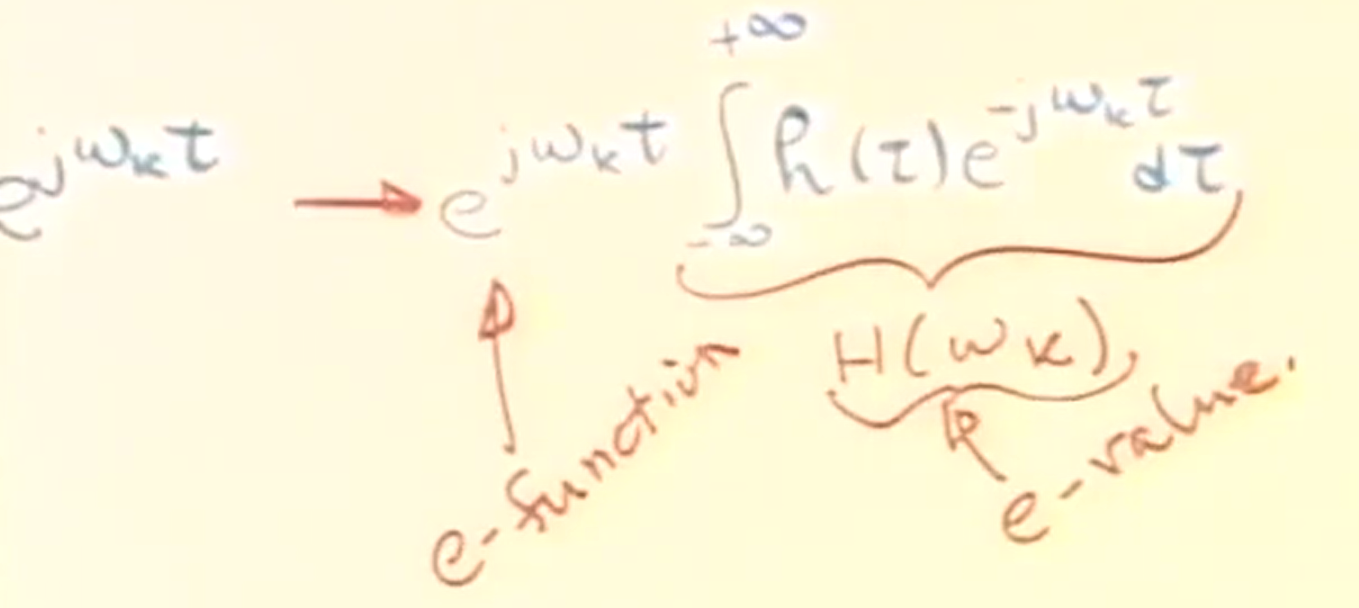 e^{jω_k t} → e^{jω_k t} ∫_{-∞}^{+∞} h(τ) e^{-jω_k τ} dτ
H(ω_k)
e-function
e-value.